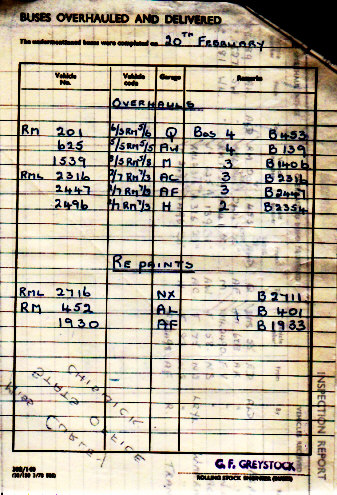 BUSES OVERHAULED AND DELIVERED
The undermentioned buses were completed on 20TH FEBRUARY
Vehicle No. Vehicle code Garage Remarks
OVERHAULS
RM 201 6/5RM5/6 Q BOS 4 B453
625 5/5RM5/5 AW 4 B139
1539 RM5/8 M 3 B1406
RML 2316 7RM7/3 AC 3 B2316
2447 7RM7/3 AF 3 B2447
2496 7RM7/3 H 2 B2354
REPAINTS
RML 2716 NX B2711
RM 452 AL B401
1930 AF B1933
INSPECTION REPORT
MISS CURLEY
STATS OFFICE
CHISWICK
G. F. GREYSTOCK
ROLLING STOCK ENGINEER (BUSES)